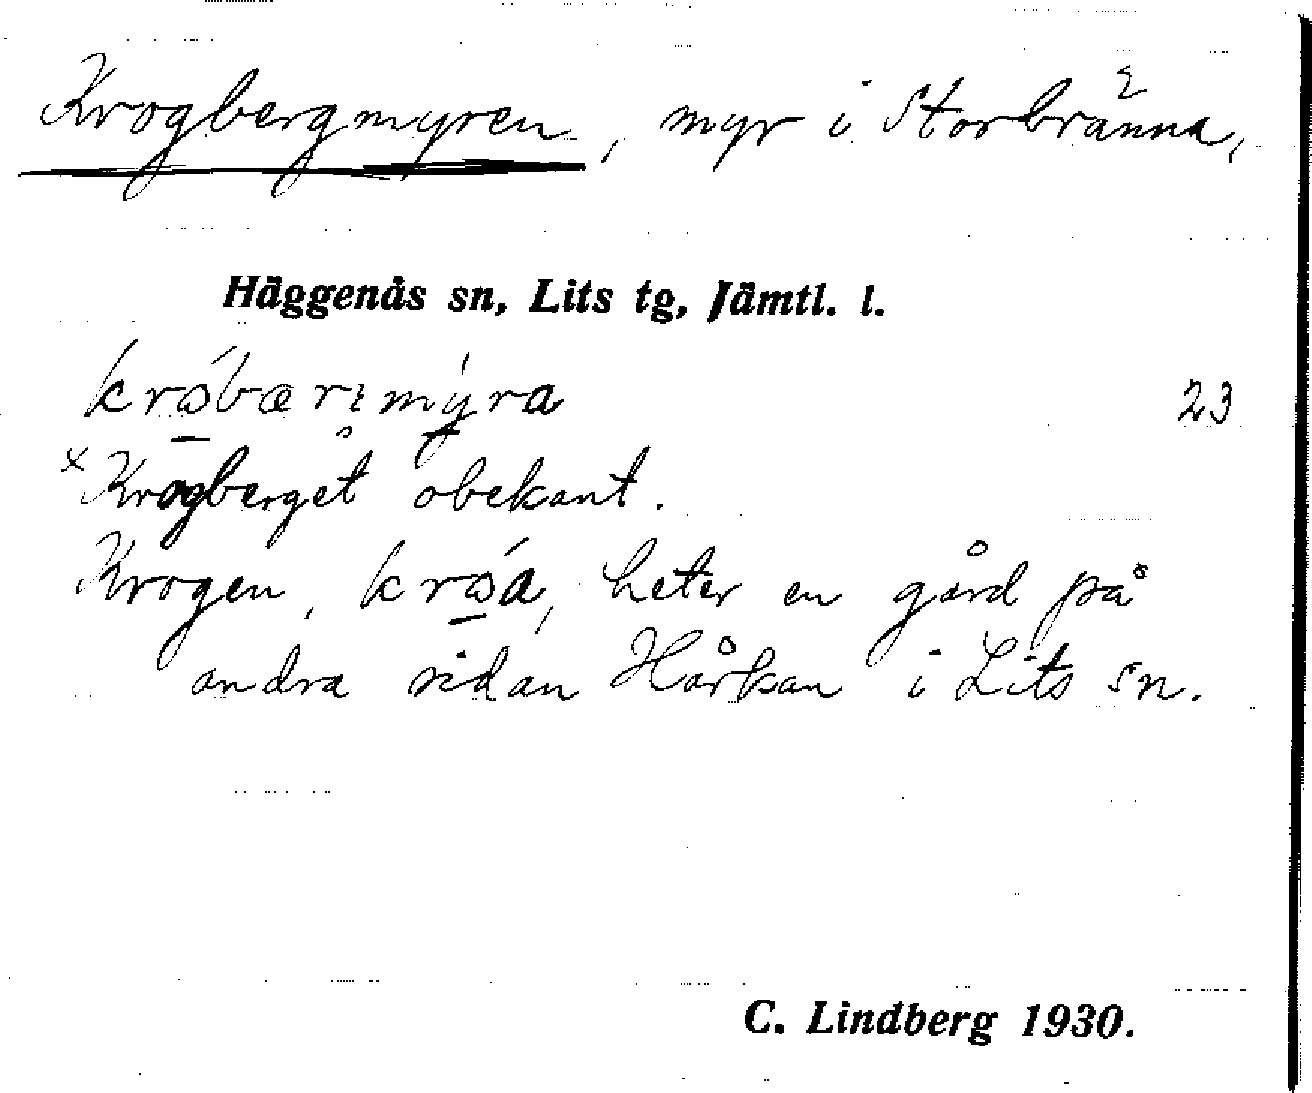 Krogbergmyren, myr i Storbränna,
Häggenås sn, Lits tg, Jämtl. l.
23
×Krogberget obekant.
Krogen, heter en gård på
andra sidan Hårkan i Lits sn.
C. Lindberg 1930.